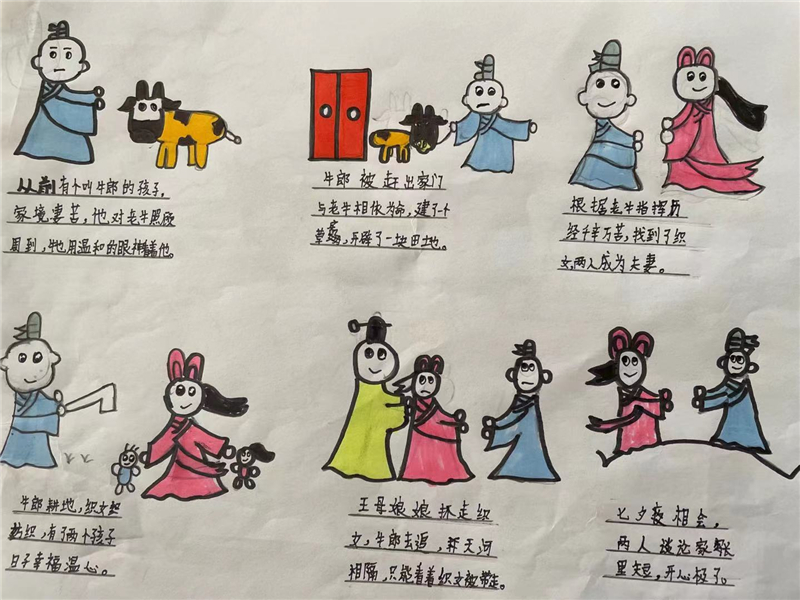 从前有个叫牛郎的孩子,
家境妻苦,他对老牛照顾
周到,牠用温和的眼神看着他。
牛郎被赶出家门
与老牛相依为命,建了个
草窝,开辟了一块田地。
根据老牛指挥历
经千辛万苦,找到了织
女,两人成为夫妻。
牛郎耕地,织女
纺织,有了两个孩子
日子幸福温心。
王母娘娘抓走织
女,牛郎去追,天河
相隔,只能看着织女被带走。
七夕夜相会,
两人谈论家
里短,开心极了。